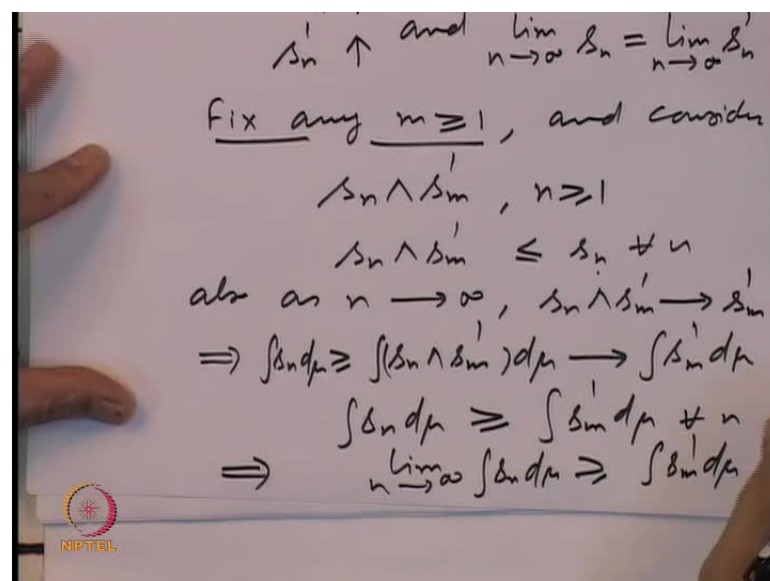 s'ₙ ↑ and lim_{n→∞} sₙ = lim_{n→∞} s'ₙ
Fix any m ≥ 1, and consider
sₙ ∧ s'ₘ, n ≥ 1
sₙ ∧ s'ₘ ≤ sₙ ∀ n
also as n → ∞, sₙ ∧ s'ₘ → s'ₘ
⇒ ∫sₙ dμ ≥ ∫(sₙ ∧ s'ₘ) dμ → ∫s'ₘ dμ
∫sₙ dμ ≥ ∫s'ₘ dμ ∀ n
⇒ lim_{n→∞} ∫sₙ dμ ≥ ∫s'ₘ dμ
NPTEL